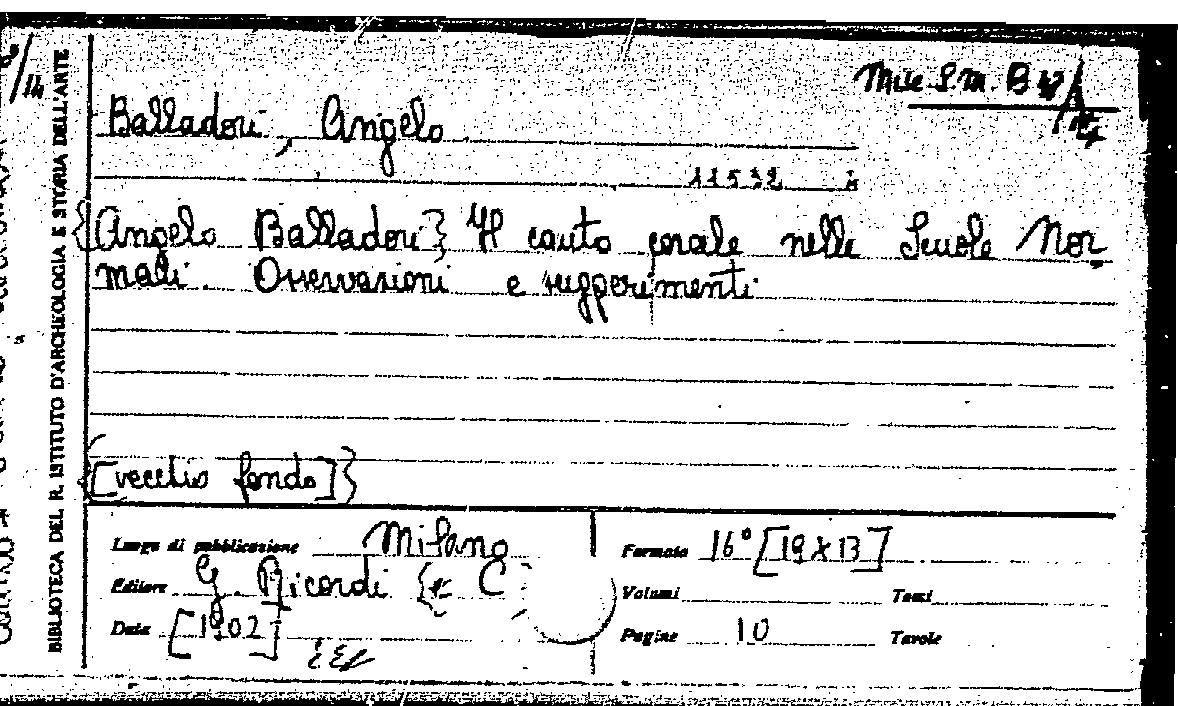 Misc. S.M. B
Balladori, Angelo
11532
{Angelo Balladori} Il canto corale nelle Scuole Nor-
mali. Osservazioni e suggerimenti
[vecchio fondo]}
Luogo di pubblicazione Milano
Editore G. Ricordi {e C
Data [1902]
Formato 16° [19 X 13]
Volumi Tomi
Pagine 10 Tavole
BIBLIOTECA DEL R. ISTITUTO D'ARCHEOLOGIA E STORIA DELL'ARTE